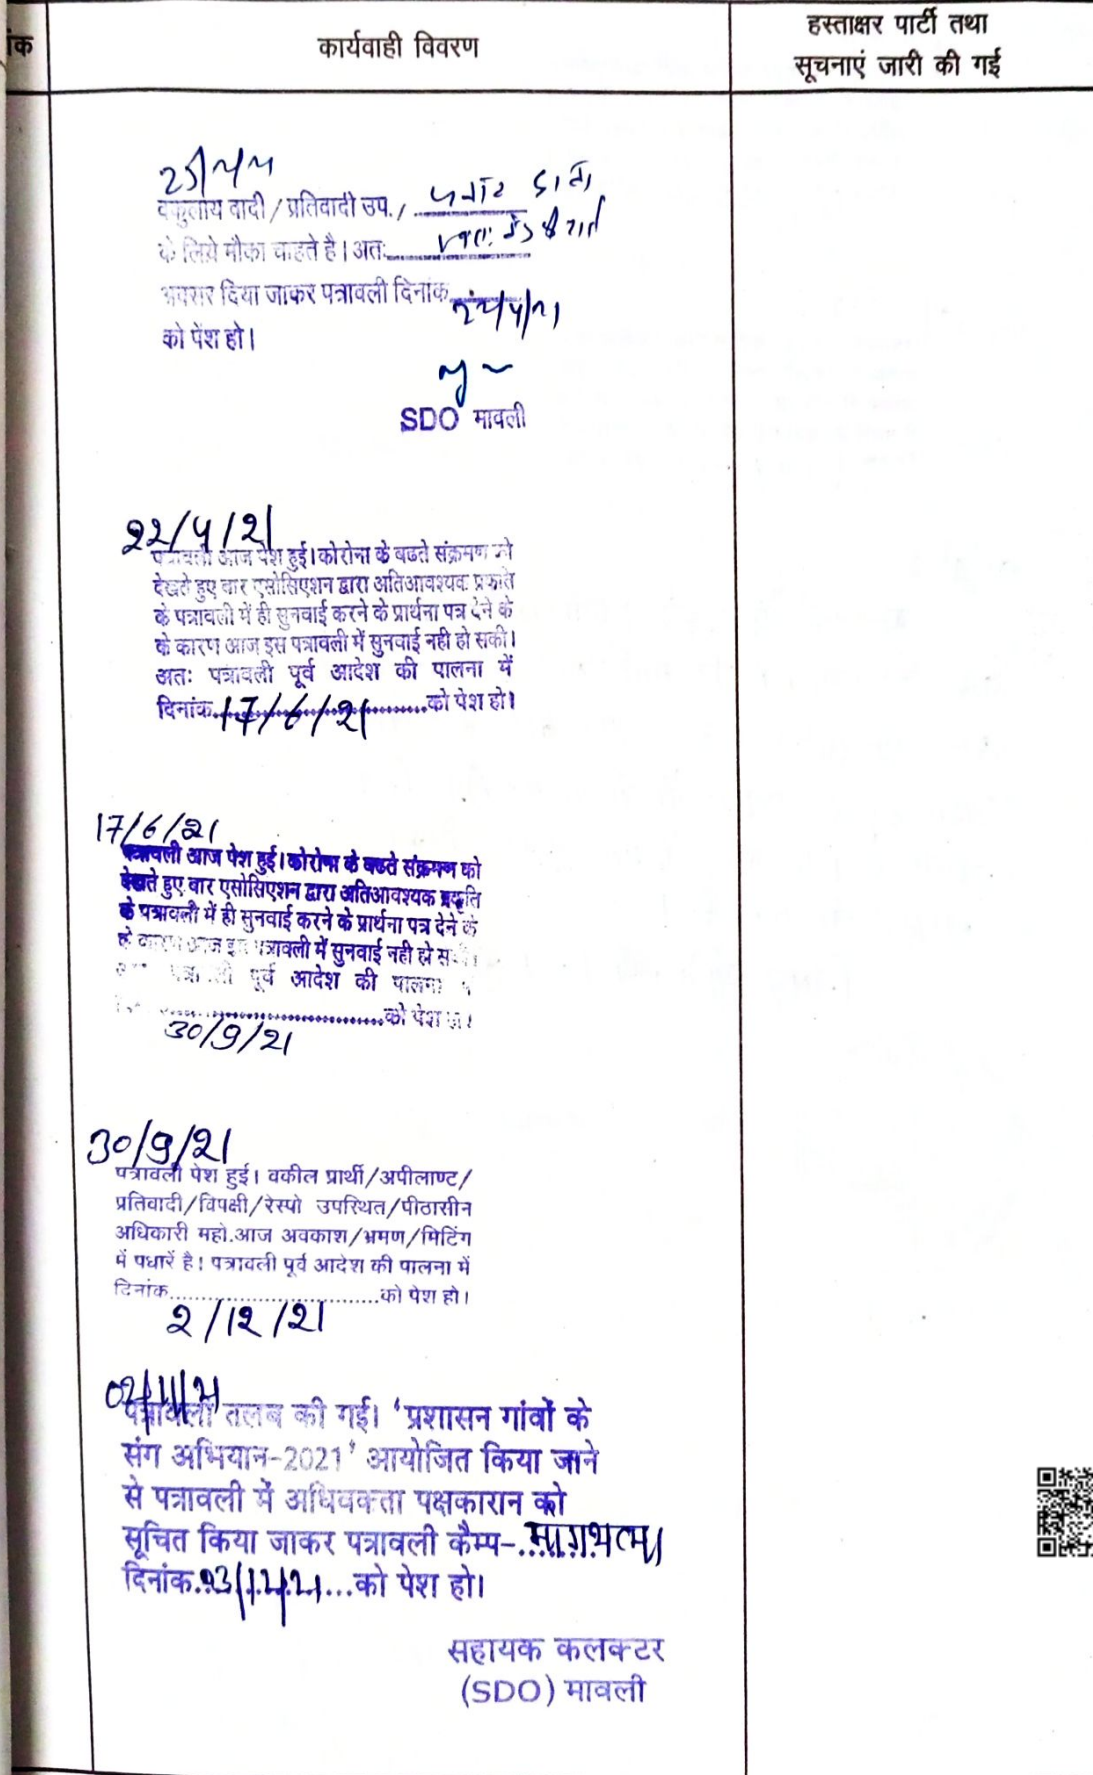 कार्यवाही विवरण
हस्ताक्षर पार्टी तथा
सूचनाएं जारी की गई
वकुलाय वादी / प्रतिवादी उप. /
के लिये मौका चाहते है। अतः
अवसर दिया जाकर पत्रावली दिनांक 22/4/21
को पेंश हो।
SDO मावली
22/4/21
पत्रावली आज पेश हुई। कोरोना के बढते संक्रमण को
देखते हुए बार एसोसिएशन द्वारा अतिआवश्यक प्रकृति
के पत्रावली में ही सुनवाई करने के प्रार्थना पत्र देने के
के कारण आज इस पत्रावली में सुनवाई नही हो सकी।
अतः पत्रावली पूर्व आदेश की पालना में
दिनांक 17/6/21 को पेश हो।
17/6/21
पत्रावली आज पेश हुई। कोरोना के बढते संक्रमण को
देखते हुए बार एसोसिएशन द्वारा अतिआवश्यक प्रकृति
के पत्रावली में ही सुनवाई करने के प्रार्थना पत्र देने के
के कारण आज इस पत्रावली में सुनवाई नही हो सकी।
पूर्व आदेश की पालना
को पेश
30/9/21
30/9/21
पत्रावली पेश हुई। वकील प्रार्थी/अपीलाण्ट/
प्रतिवादी/विपक्षी/रेस्पो उपस्थित/पीठासीन
अधिकारी महो.आज अवकाश/भ्रमण/मिटिंग
में पधारें है। पत्रावली पूर्व आदेश की पालना में
दिनांक..............................को पेश हो।
2/12/21
02/11/21
पत्रावली तलब की गई। 'प्रशासन गांवों के
संग अभियान-2021' आयोजित किया जाने
से पत्रावली में अधिवक्ता पक्षकारान को
सूचित किया जाकर पत्रावली कैम्प-
दिनांक.03/12/21...को पेश हो।
सहायक कलक्टर
(SDO) मावली